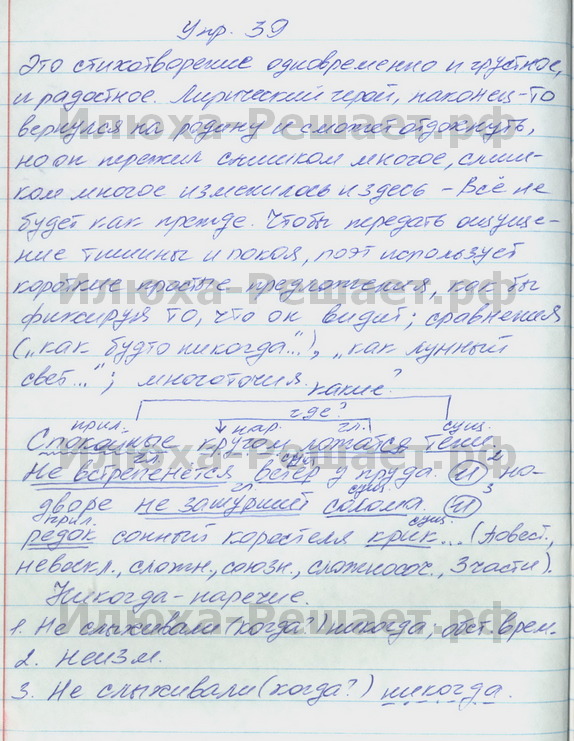 Упр. 39
Это стихотворение одновременно и грустное,
и радостное. Лирический герой, наконец-то
вернулся на родину и сможет отдохнуть,
но он пережил слишком многое, слиш-
ком многое изменилось и здесь – всё не
будет как прежде. Чтобы передать ощуще-
ние тишины и покоя, поэт использует
короткие простые предложения, как бы
фиксируя то, что он видит; сравнения
(„как будто никогда..."), „как лунный
свет..."; многоточия.
какие?
где?
прил. нар. гл. сущ.
Спокойные кругом ложатся тени.
гл. сущ. 2
Не встрепенётся ветер у пруда. (И) на-
гл. сущ. 3
дворе не зашуршит солома. (И)
прил. сущ.
редок сонный коростеля крик... (Повест.,
невоскл., сложн., союзн., сложносоч., 3 части).
Никогда – наречие.
1. Не слыживали (когда?) никогда, обст. врем.
2. Неизм.
3. Не слыживали (когда?) никогда.
Илюха-Решает.рф
Илюха-Решает.рф
Илюха-Решает.рф
Илюха-Решает.рф